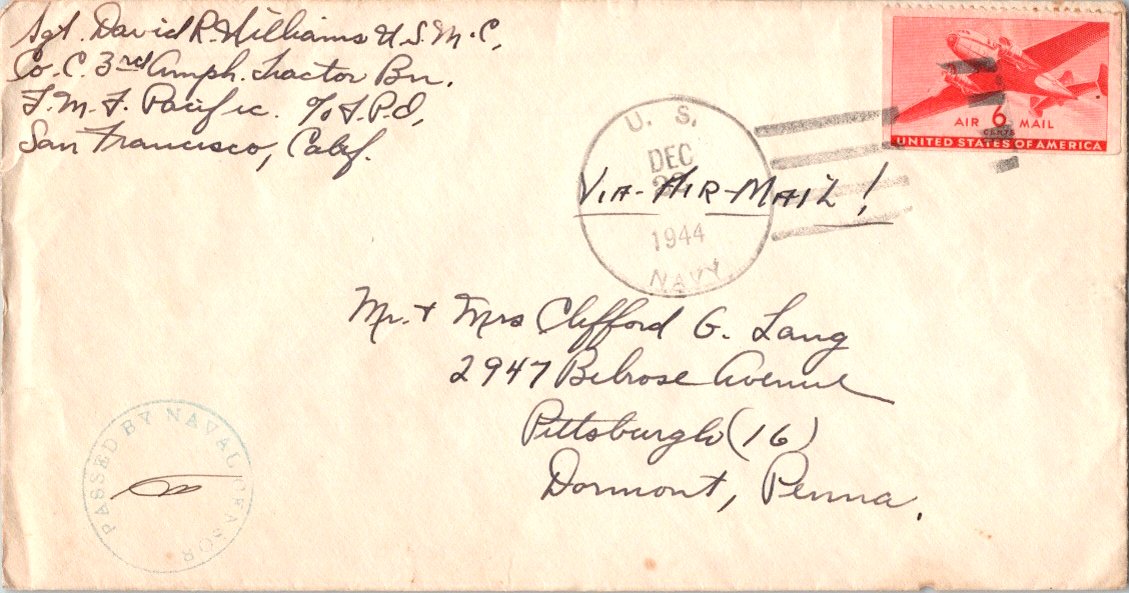 Sgt. David R. Williams U.S.M.C.,
Co. C. 3rd Amph. Tractor Bn.
F.M.F. Pacific. % F.P.O,
San Francisco, Calif.
U. S.
DEC
1944
NAVY
VIA-AIR-MAIL!
AIR 6 MAIL
CENTS
UNITED STATES OF AMERICA
Mr. + Mrs Clifford G. Lang
2947 Belrose Avenue
Pittsburgh (16)
Dormont, Penna.
PASSED BY NAVAL CENSOR